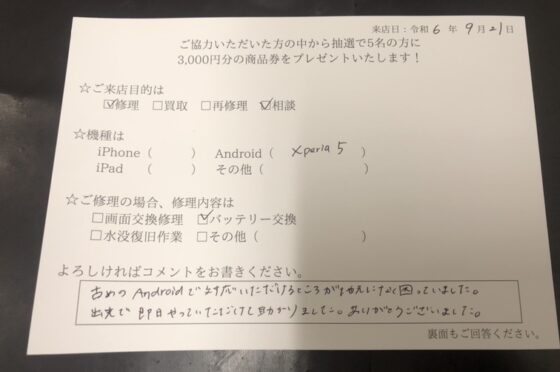 来店日：令和6年9月21日
ご協力いただいた方の中から抽選で5名の方に
3,000円分の商品券をプレゼントいたします！
☆ご来店目的は
☑修理 □買取 □再修理 ☑相談
☆機種は
iPhone（ ） Android（ Xperia 5 ）
iPad（ ） その他（ ）
☆ご修理の場合、修理内容は
□画面交換修理 ☑バッテリー交換
□水没復旧作業 □その他（ ）
よろしければコメントをお書きください。
古めのAndroidで対応いただけるところが中々なく困っていました。
即日やっていただけて助かりました。ありがとうございました。
裏面もご回答ください。